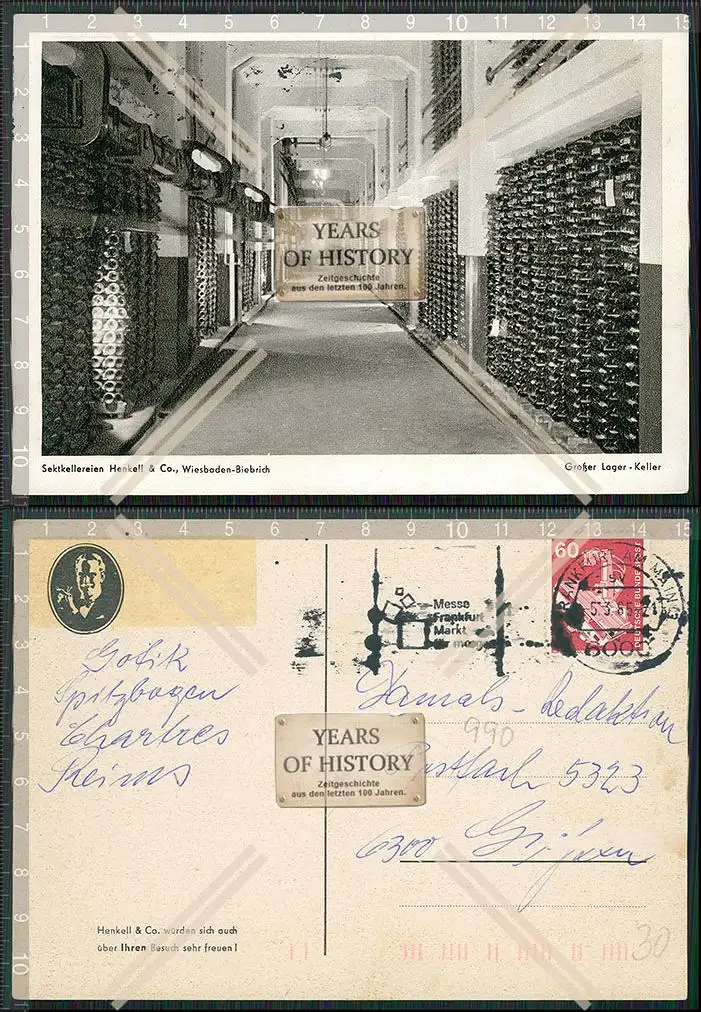 1 2 3 4 5 6 7 8 9 10 11 12 13 14 15
1 2 3 4 5 6 7 8 9 10
YEARS
OF HISTORY
Zeitgeschichte
aus den letzten 100 Jahren.
Sektkellereien Henkell & Co., Wiesbaden-Biebrich
Großer Lager - Keller
1 2 3 4 5 6 7 8 9 10 11 12 13 14 15
1 2 3 4 5 6 7 8 9 10
Messe
Frankfurt
Markt
für morgen
60
DEUTSCHE BUNDESPOST
FRANKFURT AM MAIN
6000
Gotik
Spitzbogen
Chartres
Reims
Damals - Redaktion
990
Postfach 5323
6300 Gießen
YEARS
OF HISTORY
Zeitgeschichte
aus den letzten 100 Jahren.
Henkell & Co. würden sich auch
über Ihren Besuch sehr freuen!
30